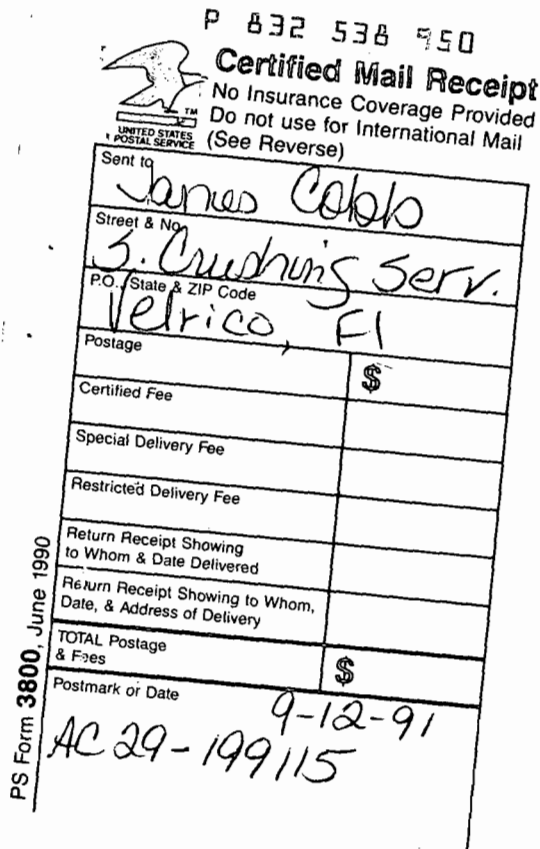 P 832 538 950
Certified Mail Receipt
No Insurance Coverage Provided
Do not use for International Mail
(See Reverse)
TM
UNITED STATES
POSTAL SERVICE
Sent to
James Cobb
Street & No.
S. Crushing Serv.
P.O., State & ZIP Code
Velrico, Fl
Postage
$
Certified Fee
Special Delivery Fee
Restricted Delivery Fee
Return Receipt Showing
to Whom & Date Delivered
Return Receipt Showing to Whom,
Date, & Address of Delivery
TOTAL Postage
& Fees
$
Postmark or Date
9-12-91
AC 29-199115
PS Form 3800, June 1990